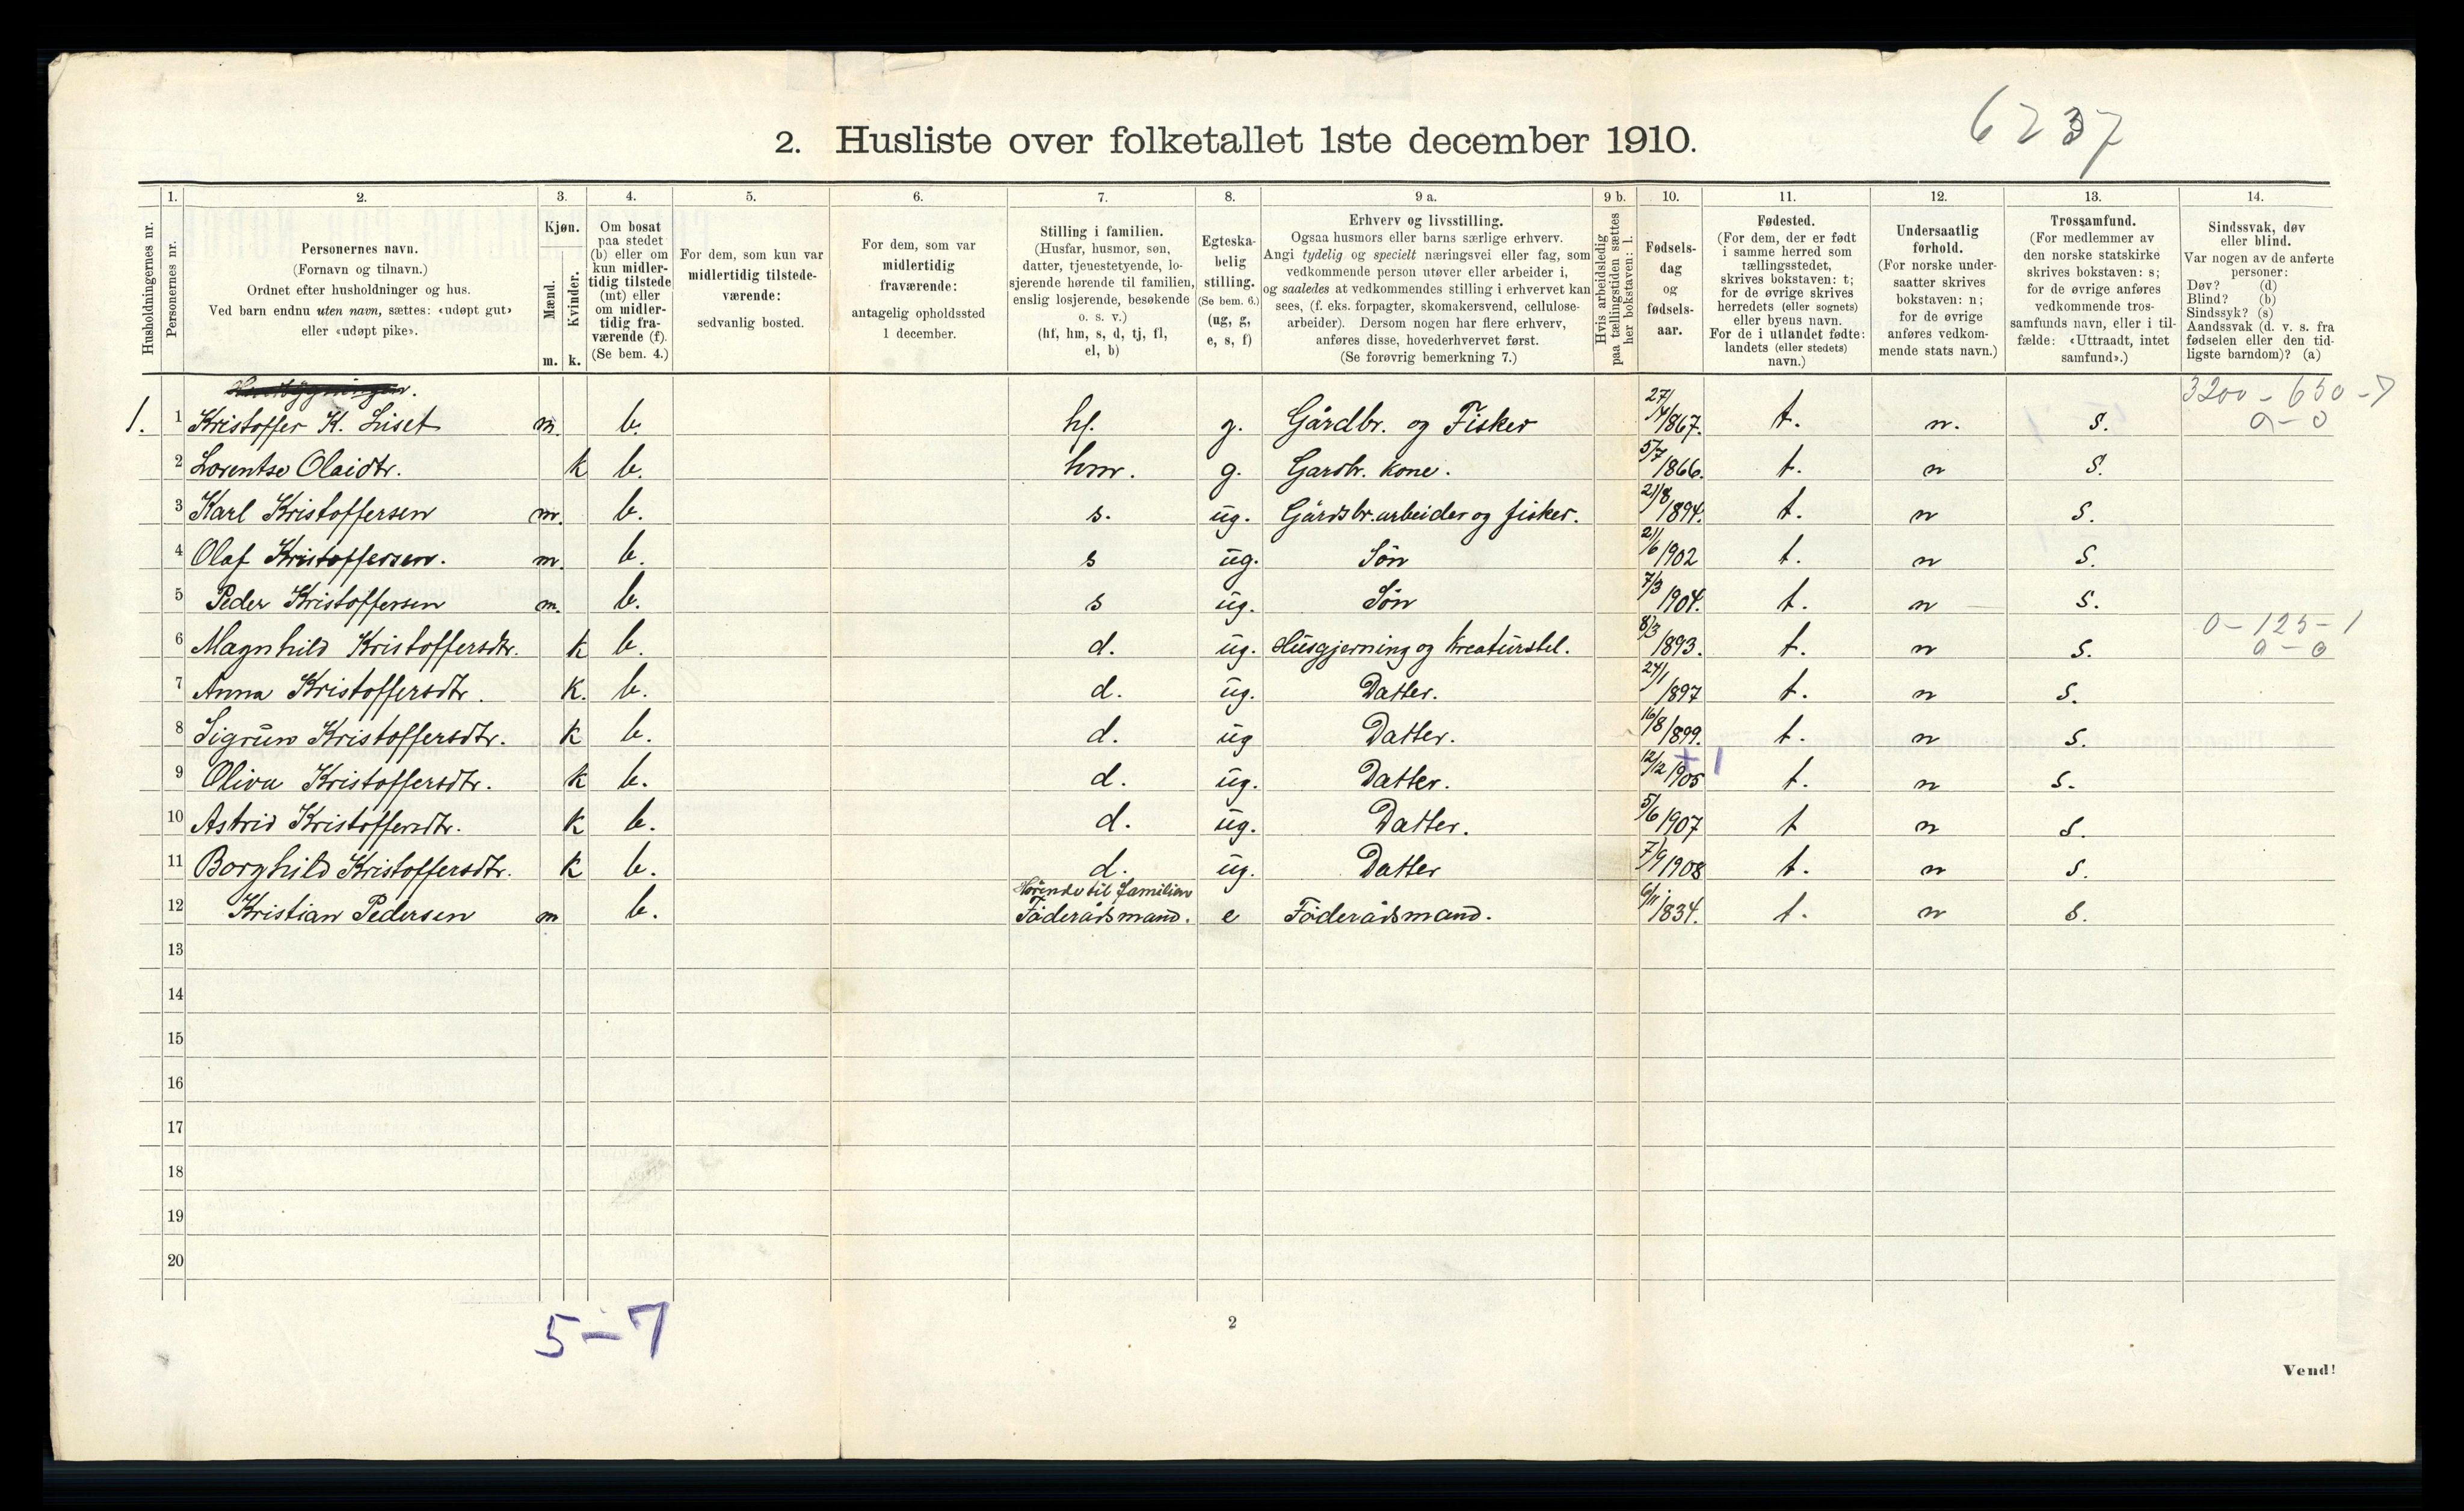 6237
2. Husliste over folketallet 1ste december 1910.
Husholdningernes nr.
1. Personernes nr.
2. Personernes navn.
(Fornavn og tilnavn.)
Ordnet efter husholdninger og hus.
Ved barn endnu uten navn, sættes: «udøpt gut»
eller «udøpt pike».
3. Kjøn.
Mænd. m.
Kvinder. k.
4. Om bosat
paa stedet
(b) eller om
kun midler-
tidig tilstede
(mt) eller
om midler-
tidig fra-
værende (f).
(Se bem. 4.)
5. For dem, som kun var
midlertidig tilstede-
værende:
sedvanlig bosted.
6. For dem, som var
midlertidig
fraværende:
antagelig opholdssted
1 december.
7. Stilling i familien.
(Husfar, husmor, søn,
datter, tjenestetyende, lo-
sjerende hørende til familien,
enslig losjerende, besøkende
o. s. v.)
(hf, hm, s, d, tj, fl,
el, b)
8. Egteska-
belig
stilling.
(Se bem. 6.)
(ug, g,
e, s, f)
9 a. Erhverv og livsstilling.
Ogsaa husmors eller barns særlige erhverv.
Angi tydelig og specielt næringsvei eller fag, som
vedkommende person utøver eller arbeider i,
og saaledes at vedkommendes stilling i erhvervet kan
sees, (f. eks. forpagter, skomakersvend, cellulose-
arbeider). Dersom nogen har flere erhverv,
anføres disse, hovederhvervet først.
(Se forøvrig bemerkning 7.)
9 b. Hvis arbeidsledig
paa tællingstiden sættes
her bokstaven: l.
10. Fødsels-
dag
og
fødsels-
aar.
11. Fødested.
(For dem, der er født
i samme herred som
tællingsstedet,
skrives bokstaven: t;
for de øvrige skrives
herredets (eller sognets)
eller byens navn.
For de i utlandet fødte:
landets (eller stedets)
navn.)
12. Undersaatlig
forhold.
(For norske under-
saatter skrives
bokstaven: n;
for de øvrige
anføres vedkom-
mende stats navn.)
13. Trossamfund.
(For medlemmer av
den norske statskirke
skrives bokstaven: s;
for de øvrige anføres
vedkommende tros-
samfunds navn, eller i til-
fælde: «Uttraadt, intet
samfund».)
14. Sindssvak, døv
eller blind.
Var nogen av de anførte
personer:
Døv? (d)
Blind? (b)
Sindssyk? (s)
Aandssvak (d. v. s. fra
fødselen eller den tid-
ligste barndom)? (a)
3200 - 650 - 7
1. 1 Kristoffer K. Liset m. b. hf. g. Gårdbr. og Fisker 27/4 1867. t. n. s. 0 - 0
2 Lorentse Olaidtr. k b. hm. g. Gardbr. kone. 5/7 1866. t. n s.
3 Karl Kristoffersen m. b. s. ug. Gårdsbr. arbeider og fisker. 21/8 1894. t. n s.
4 Olaf Kristoffersen. m. b. s ug. Søn 21/6 1902 t. n s.
5 Peder Kristoffersen m. b. s ug. Søn 7/3 1904. t. n s.
0 - 125 - 1
6 Magnhild Kristoffersdtr. k b. d. ug. Husgjerning og kreaturstel. 8/3 1893. t. n s. 0 - 0
7 Anna Kristoffersdtr. k. b. d. ug. Datter. 24/1 1897 t. n s.
8 Sigrun Kristoffersdtr. k b. d. ug Datter. 16/8 1899. t. n s.
+1
9 Oliva Kristoffersdtr. k b. d. ug. Datter. 12/12 1905 t. n s.
10 Astrid Kristoffersdtr. k b. d. ug. Datter. 5/6 1907 t n s.
11 Borghild Kristoffersdtr. k b. d. ug. Datter 7/9 1908 t. n s.
Hørende til familien
12 Kristian Pedersen m b. Føderådsmand. e Føderådsmand. 6/11 1834. t. n s.
13
14
15
16
17
18
19
20
5-7
2
Vend!